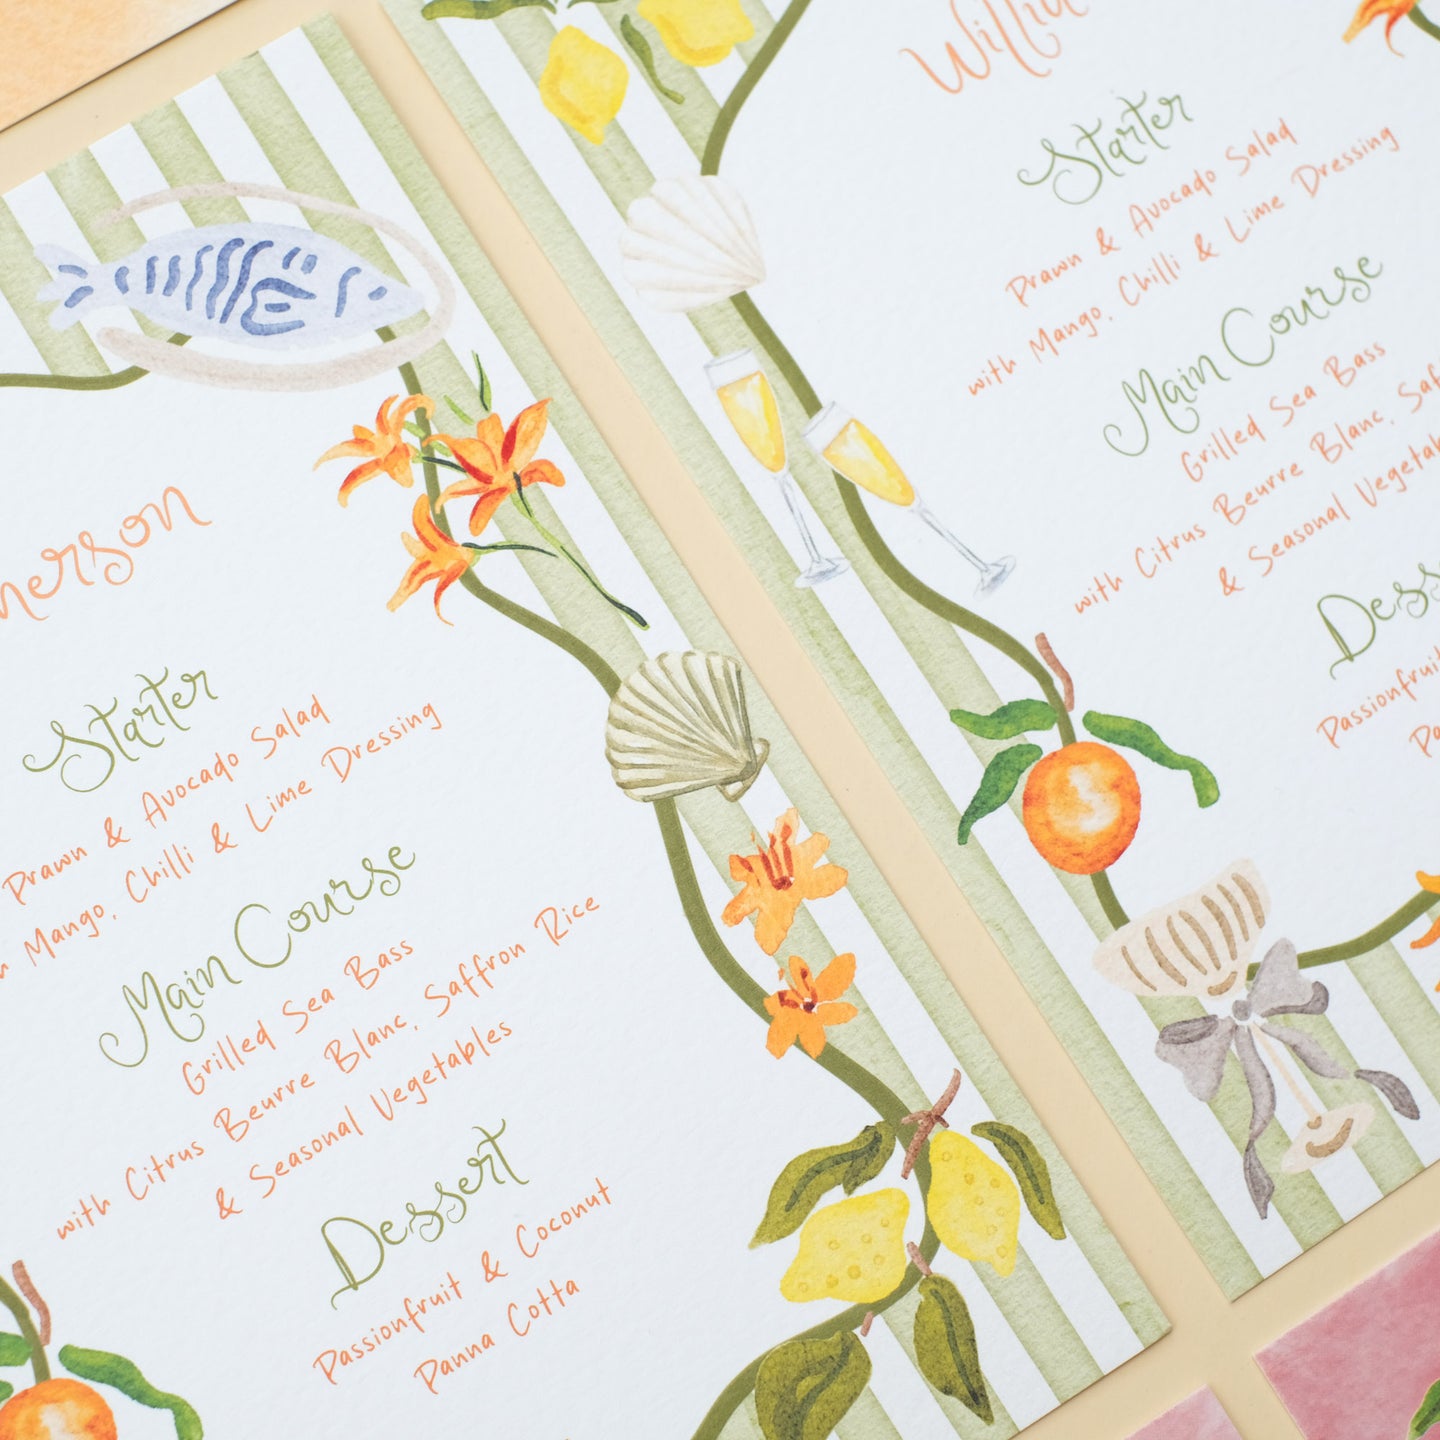 nerson
Starter
Prawn & Avocado Salad
Mango, Chilli & Lime Dressing
Main Course
Grilled Sea Bass
with Citrus Beurre Blanc, Saffron Rice
& Seasonal Vegetables
Dessert
Passionfruit & Coconut
Panna Cotta
Starter
Prawn & Avocado Salad
with Mango, Chilli & Lime Dressing
Main Course
Grilled Sea Bass
with Citrus Beurre Blanc, Saf
& Seasonal Vegetab
Dess
Passionfruit